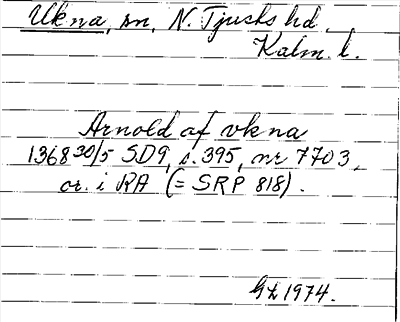 Ukna, sn, N. Tjusts hd.
Kalm. l.
Arnold af vkna
1368 30/5 SD9, s. 395, nr 7703,
or. i RA (= SRP 818).
GL 1974.